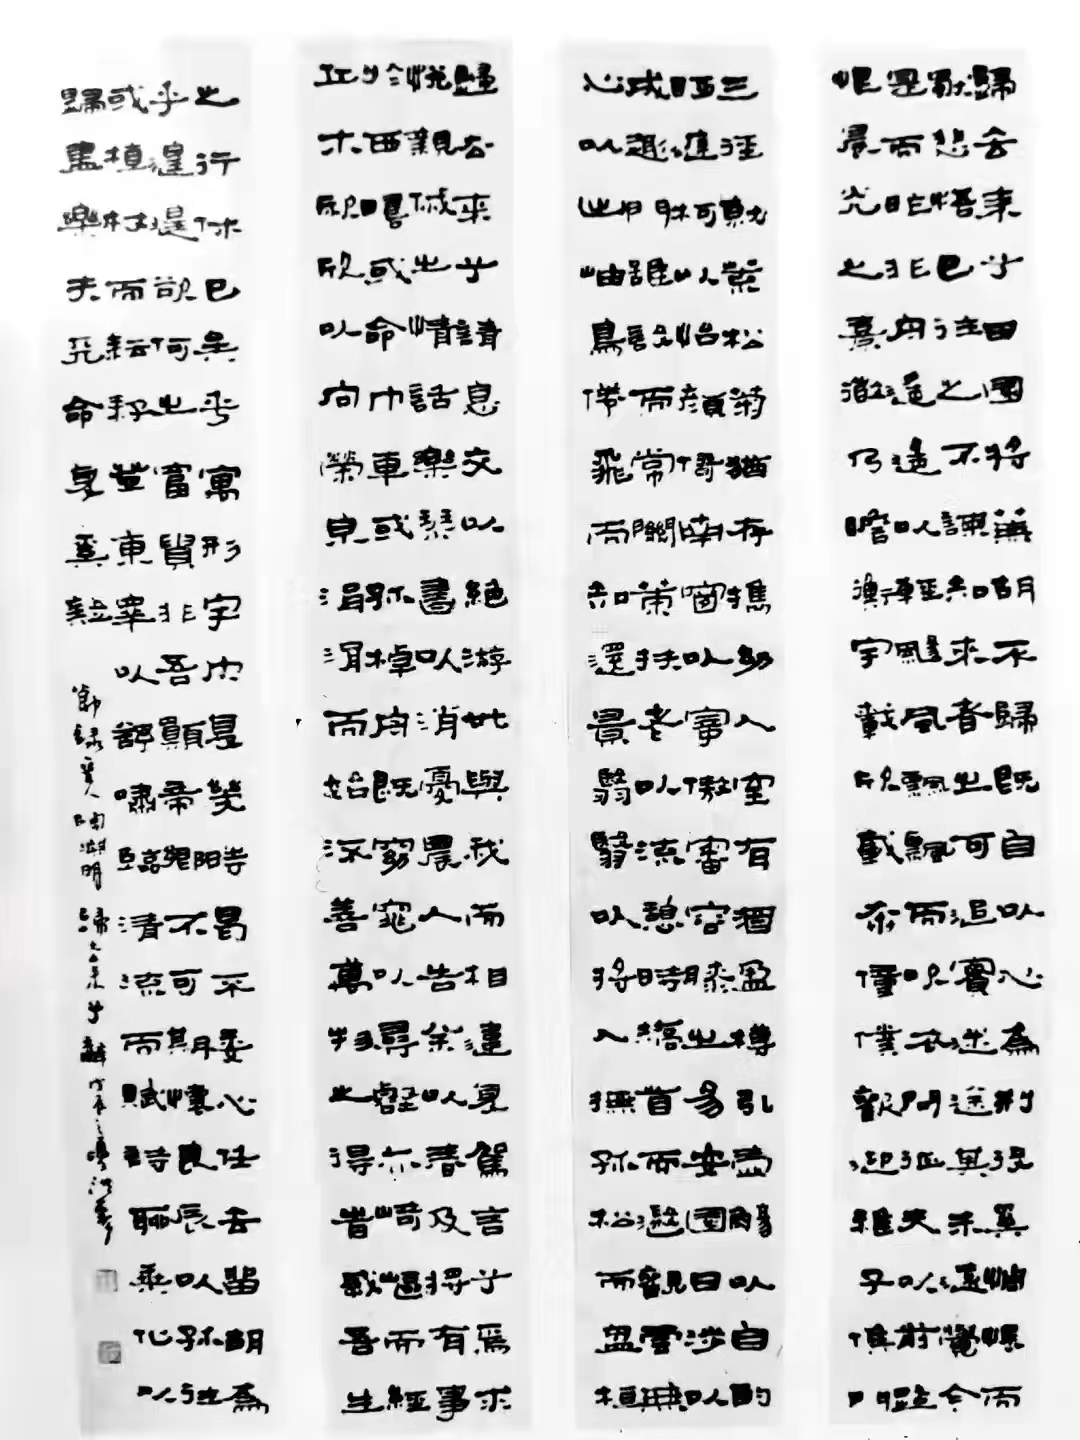 歸去來兮田園將蕪胡不歸既自以心為形役奚惆悵而
獨悲悟已往之不諫知來者之可追實迷途其未遠覺今
是而昨非舟遙遙以輕颺風飄飄而吹衣問征夫以前路
恨晨光之熹微乃瞻衡宇載欣載奔僮僕歡迎稚子候門
三徑就荒松菊猶存攜幼入室有酒盈樽引壺觴以自酌
眄庭柯以怡顏倚南窗以寄傲審容膝之易安園日涉以
成趣門雖設而常關策扶老以流憩時矯首而遐觀雲無
心以出岫鳥倦飛而知還景翳翳以將入撫孤松而盤桓
歸去來兮請息交以絕游世與我而相違復駕言兮焉求
悅親戚之情話樂琴書以消憂農人告余以春及將有事
於西疇或命巾車或孤棹舟既窈窕以尋壑亦崎嶇而經
丘木欣欣以向榮泉涓涓而始流善萬物之得時感吾生
之行休已矣乎寓形宇內復幾時曷不委心任去留胡為
乎遑遑欲何之富貴非吾願帝鄉不可期懷良辰以孤往
或植杖而耘耔登東皋以舒嘯臨清流而賦詩聊乘化以
歸盡樂夫天命復奚疑
節錄晉人陶淵明歸去來兮辭